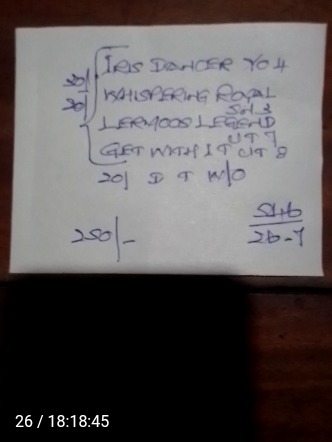 30/
20/
IRIS DANCER YO 4
WHISPERING ROYAL
SN 3
LERMOOS LEGEND
UT 7
GET WITH IT UT 8
20/ D T W/O
250/-
26-7
26 / 18:18:45